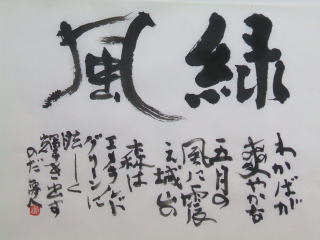 緑風
わかばが
爽やかな
五月の
風に震
え城山の
森は
エメラルド
グリーンに
眩しく
輝き出す
のだ